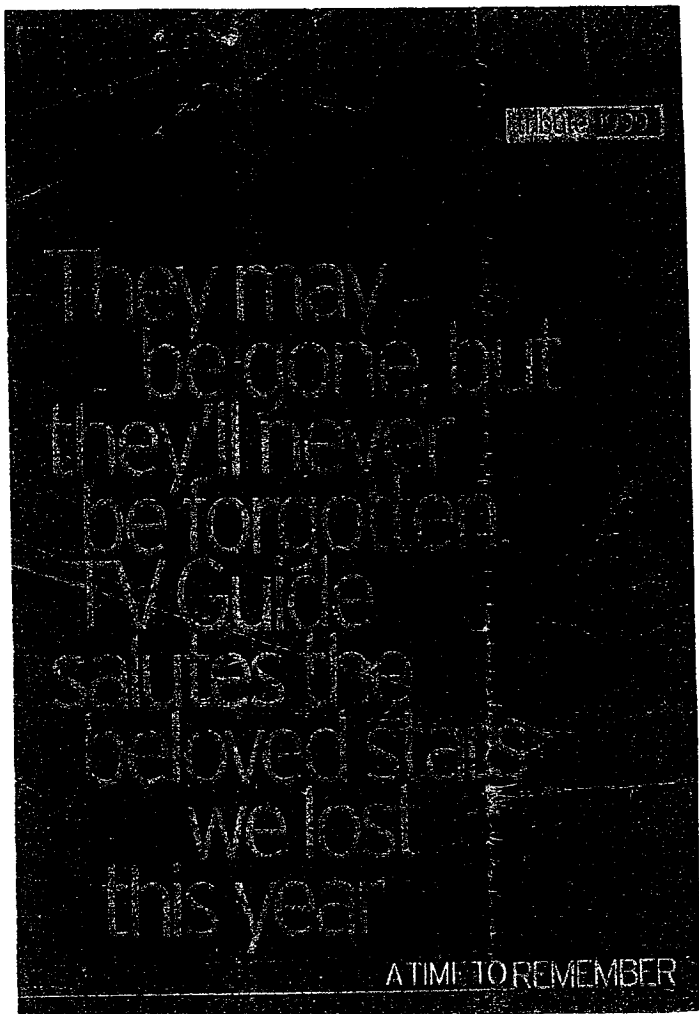 tribute 1999
They may
be gone, but
they'll never
be forgotten
TV Guide
salutes the
beloved stars
we lost
this year
A TIME TO REMEMBER